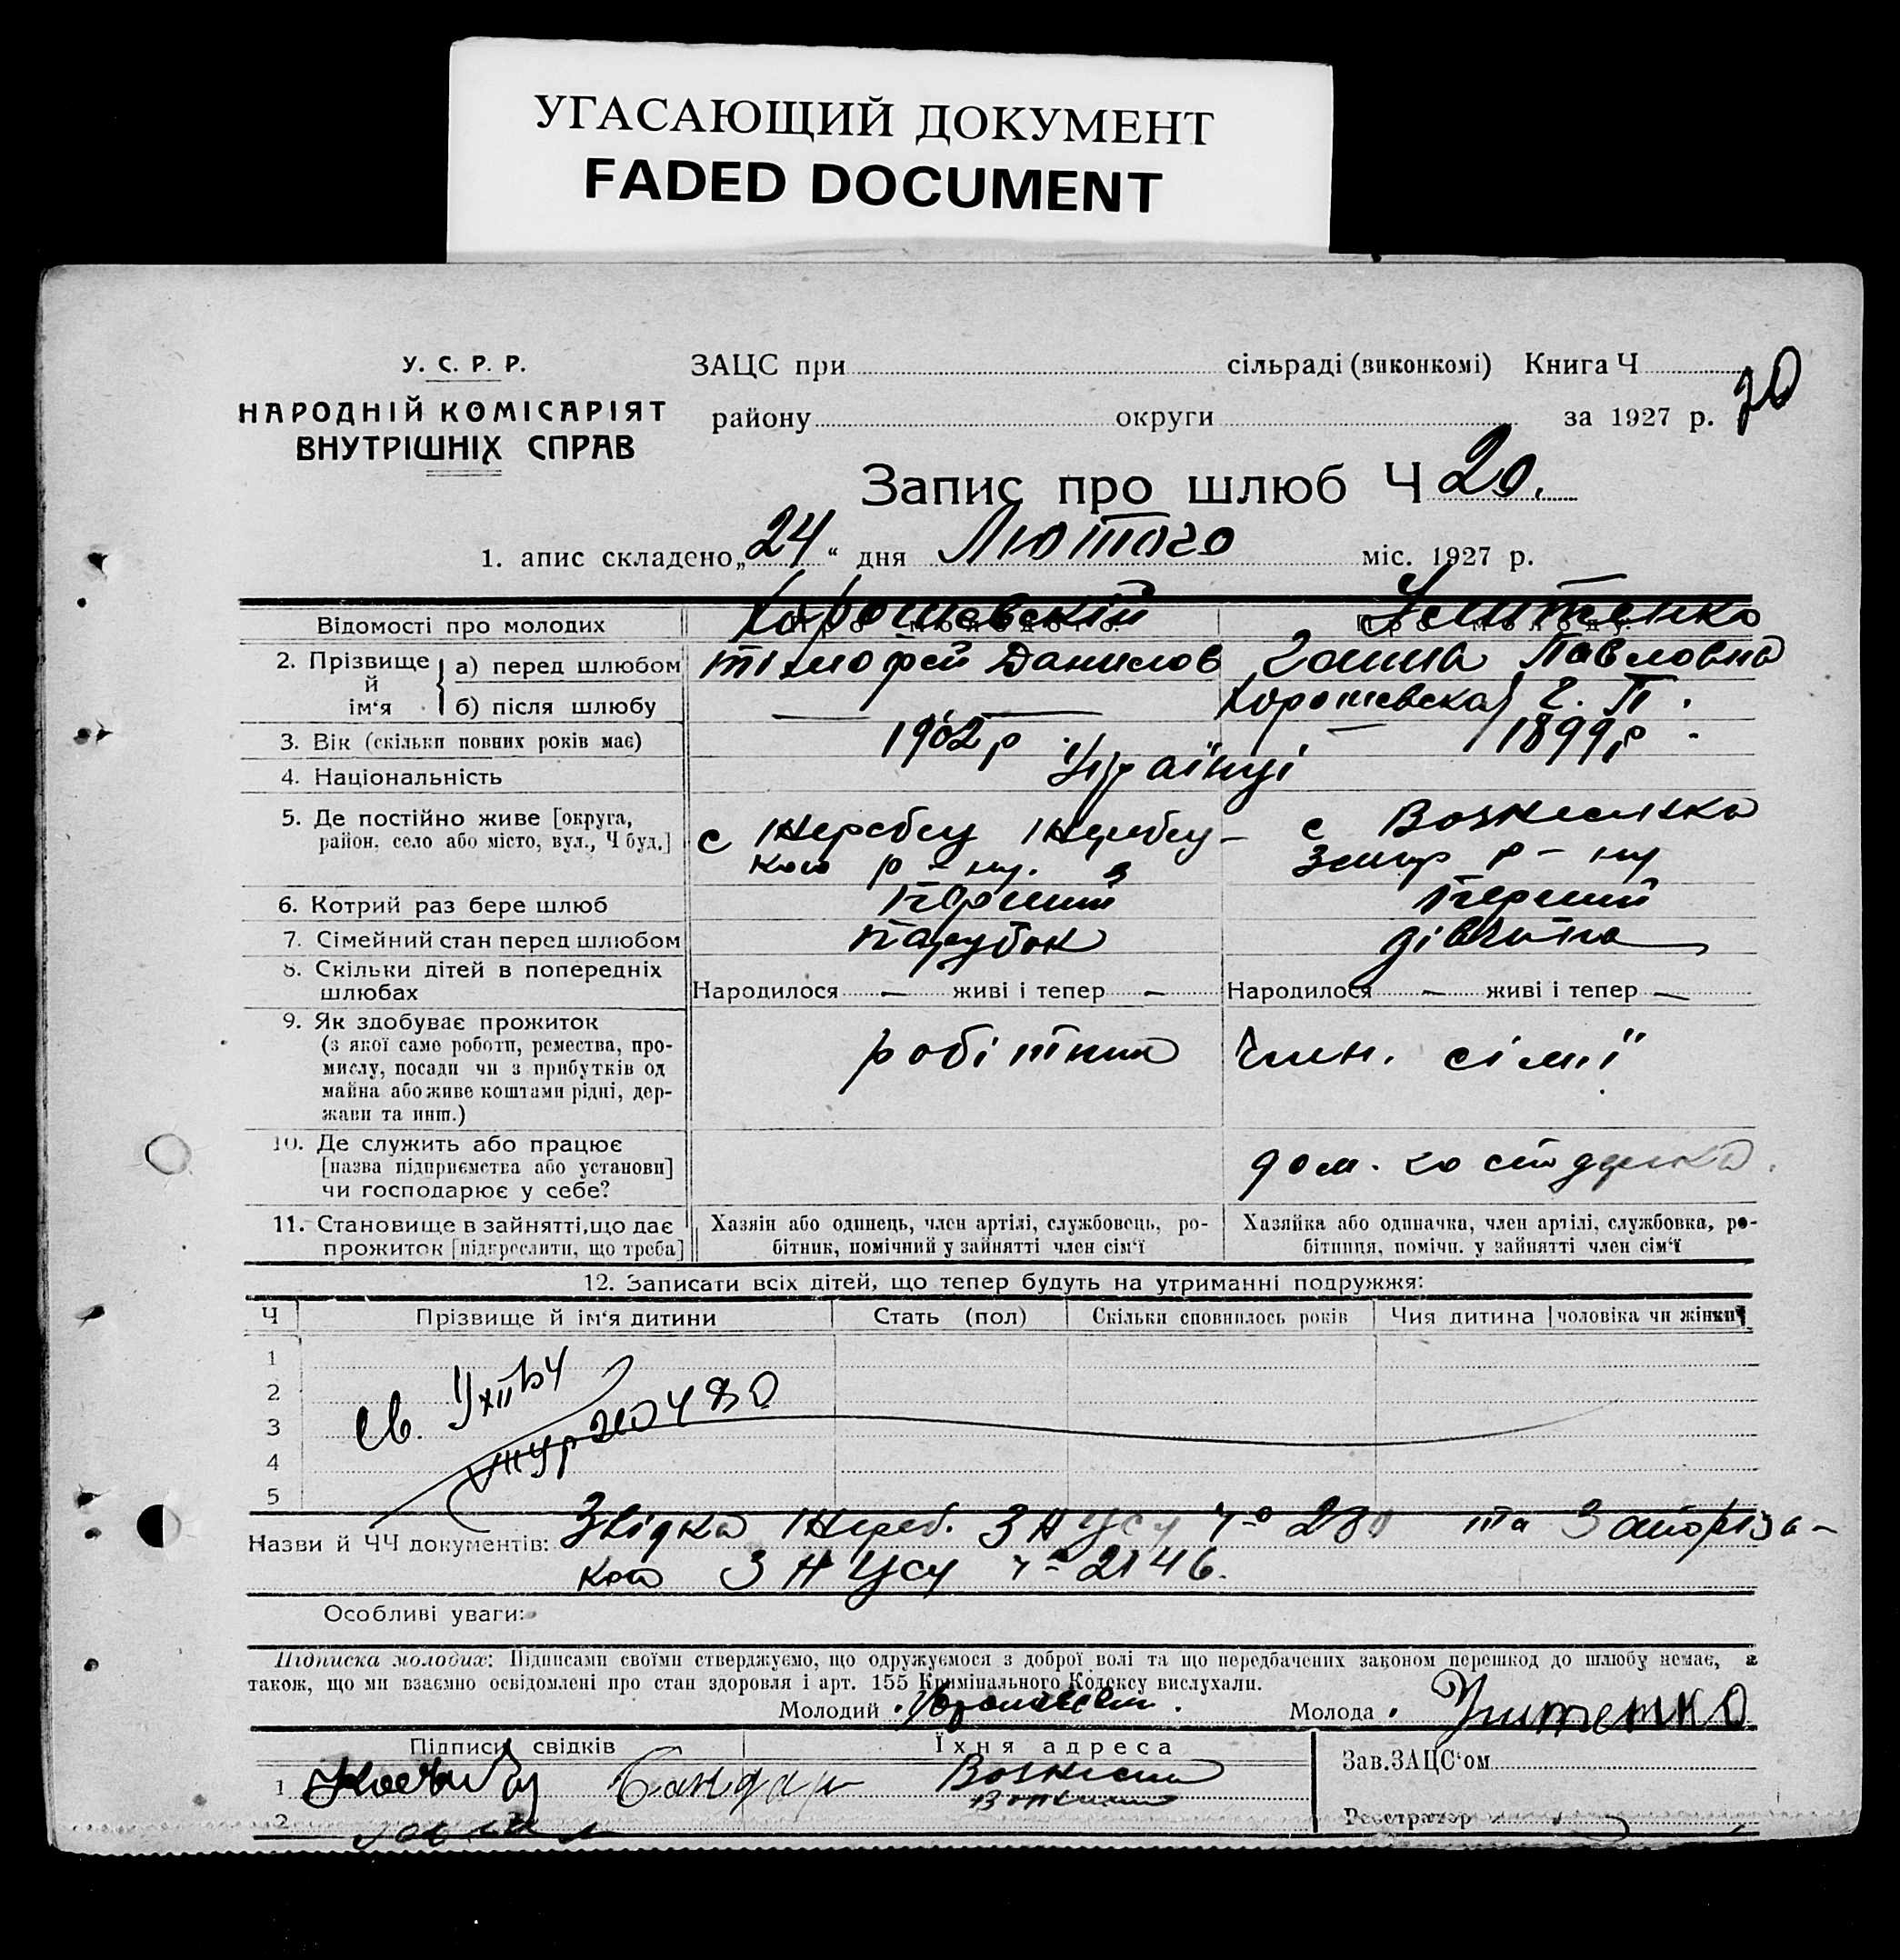 УГАСАЮЩИЙ ДОКУМЕНТ
FADED DOCUMENT
У. С. Р. Р.
НАРОДНІЙ КОМІСАРІЯТ
ВНУТРІШНІХ СПРАВ
ЗАЦС при сільраді (виконкомі) Книга Ч
району округи за 1927 р.
20
Запис про шлюб Ч 20.
1. апис складено „24“ дня Лютого міс. 1927 р.
Відомості про молодих Хорошевскій
2. Прізвище й ім‘я а) перед шлюбом Тімофей Данилов Ганна Павловна
б) після шлюбу — Хорошевска Г. П.
3. Вік (скільки повних років має) 1902 р. 1899 р.
4. Національність Українці
5. Де постійно живе [округа, район, село або місто, вул., Ч буд.]
с Жеребец Жеребец- с Вознесенка
кого р-ну. р-ну
6. Котрий раз бере шлюб Перший Перший
7. Сімейний стан перед шлюбом парубок дівчина
8. Скільки дітей в попередніх шлюбах Народилося — живі і тепер — Народилося — живі і тепер —
9. Як здобуває прожиток
(з якої саме роботи, ремества, про-
мислу, посади чи з прибутків од
майна або живе коштами рідні, дер-
жави та инш.)
робітник член. сімії
10. Де служить або працює
[назва підприємства або установи]
чи господарює у себе?
дом. господарка.
11. Становище в зайнятті, що дає
прожиток [підкреслити, що треба]
Хазяін або одинець, член артілі, службовець, ро-
бітник, помічний у зайнятті член сім‘ї
Хазяйка або одиначка, член артілі, службовка, ро-
бітниця, помічн. у зайнятті член сім‘ї
12. Записати всіх дітей, що тепер будуть на утриманні подружжя:
Ч Прізвище й ім‘я дитини Стать (пол) Скільки сповнилось років Чия дитина [чоловіка чи жінки]
1
2
3
4
5
Назви й ЧЧ документів: Звідка Жереб. ЗАЦСу ч-о 280 та Запорізь-
кого ЗАЦСу ч-о 2146.
Особливі уваги:
Підписка молодих: Підписами своїми стверджуємо, що одружуємося з доброї волі та що передбачених законом перешкод до шлюбу немає, а
також, що ми взаємно освідомлені про стан здоровля і арт. 155 Кримінального Кодексу вислухали.
Молодий Молода
Підписи свідків Їхня адреса Зав.ЗАЦС‘ом
1 Бондар
2
Реєстратор